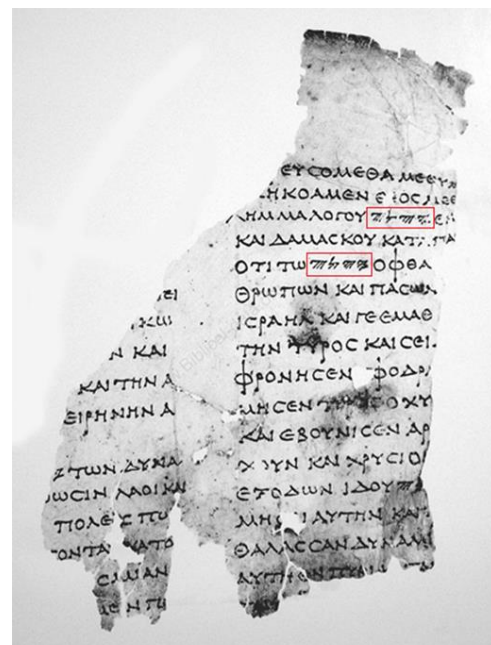 ΕΙ
ΚΩ
Ν ΚΑΙ
ΚΑΙ ΤΗΝ Α
ΕΙΡΗΝΗΝ Α
Ζ ΤΩΝ ΔΥΝΑ
ΩϹΙΝ ΛΑΟΙ ΚΑΙ
ΠΟΛΕΙϹ ΠΟ
ΟΝΤΑ ΚΑΤΟ
ΕΝ ΠΟ
ΕΥϹΟΜΕΘΑ ΜΕΘ Υ
ΗΚΟΑΜΕΝ Ε ΟϹ ΜΕΘ
ΛΗΜΜΑ ΛΟΓΟΥ 𐤉𐤄𐤅𐤄 ΕΝ
ΚΑΙ ΔΑΜΑϹΚΟΥ ΚΑΤΑ ΠΑ
ΟΤΙ ΤΩ 𐤉𐤄𐤅𐤄 ΟΦΘΑ
ΘΡΩΠΩΝ ΚΑΙ ΠΑϹΩΝ
ΙϹΡΑΗΛ ΚΑΙ ΓΕ ΕΜΑΘ
ΤΗΝ ΤΥΡΟϹ ΚΑΙ ϹΕΙ
ΦΡΟΝΗϹΕΝ ΦΟΔΡ
ΜΗϹΕΝ ΤΥΡΟϹ ΟΧΥ
ΚΑΙ ΕΒΟΥΝΙϹΕΝ ΑΡ
ΧΟΥΝ ΚΑΙ ΧΡΥϹΙΟ
ΕΞΟΔΩΝ ΙΔΟΥ
ΜΗϹΕΙ ΑΥΤΗΝ ΚΑΙ
ΘΑΛΑϹϹΑΝ ΔΥΝΑΜΙ
ΑΥΤΗ ΕΝ ΠΥΡΙ